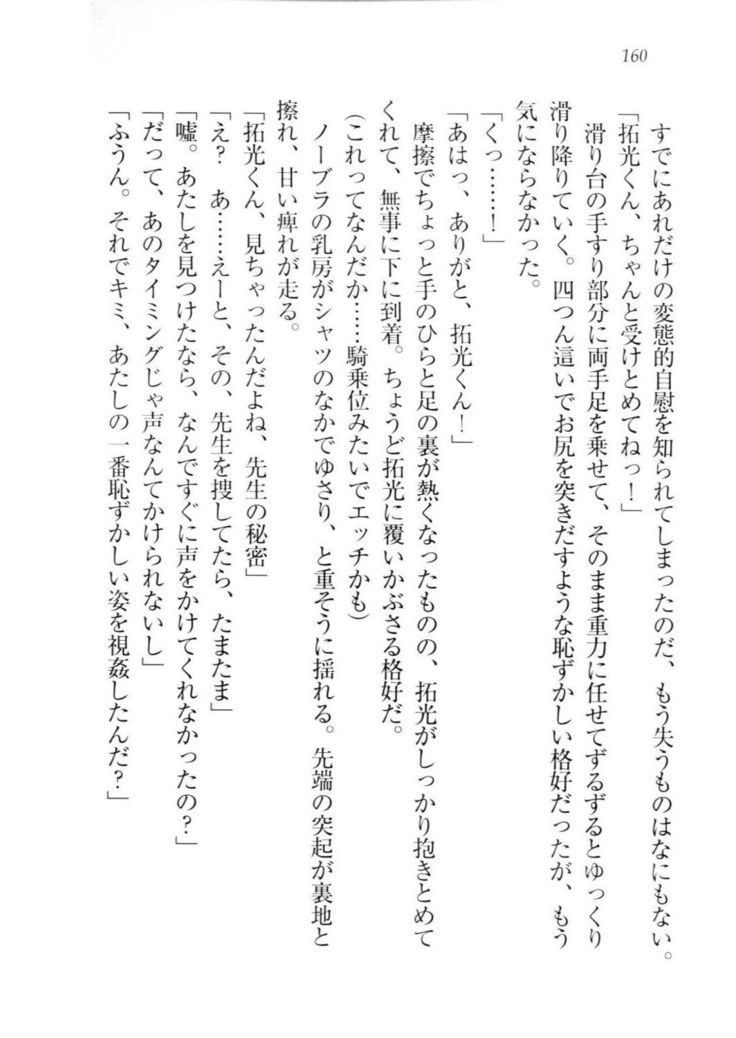 160
すでにあれだけの変態的自慰を知られてしまったのだ、もう失うものはなにもない。
「拓光くん、ちゃんと受けとめてねっ！」
滑り台の手すり部分に両手足を乗せて、そのまま重力に任せてずるずるとゆっくり
滑り降りていく。四つん這いでお尻を突きだすような恥ずかしい格好だったが、もう
気にならなかった。
「くっ……！」
「あはっ、ありがと、拓光くん！」
摩擦でちょっと手のひらと足の裏が熱くなったものの、拓光がしっかり抱きとめて
くれて、無事に下に到着。ちょうど拓光に覆いかぶさる格好だ。
（これってなんだか……騎乗位みたいでエッチかも）
ノーブラの乳房がシャツのなかでゆさり、と重そうに揺れる。先端の突起が裏地と
擦れ、甘い痺れが走る。
「拓光くん、見ちゃったんだよね、先生の秘密」
「え？　あ……えーと、その、先生を捜してたら、たまたま」
「嘘。あたしを見つけたなら、なんですぐに声をかけてくれなかったの？」
「だって、あのタイミングじゃ声なんてかけられないし」
「ふうん。それでキミ、あたしの一番恥ずかしい姿を視姦したんだ？」